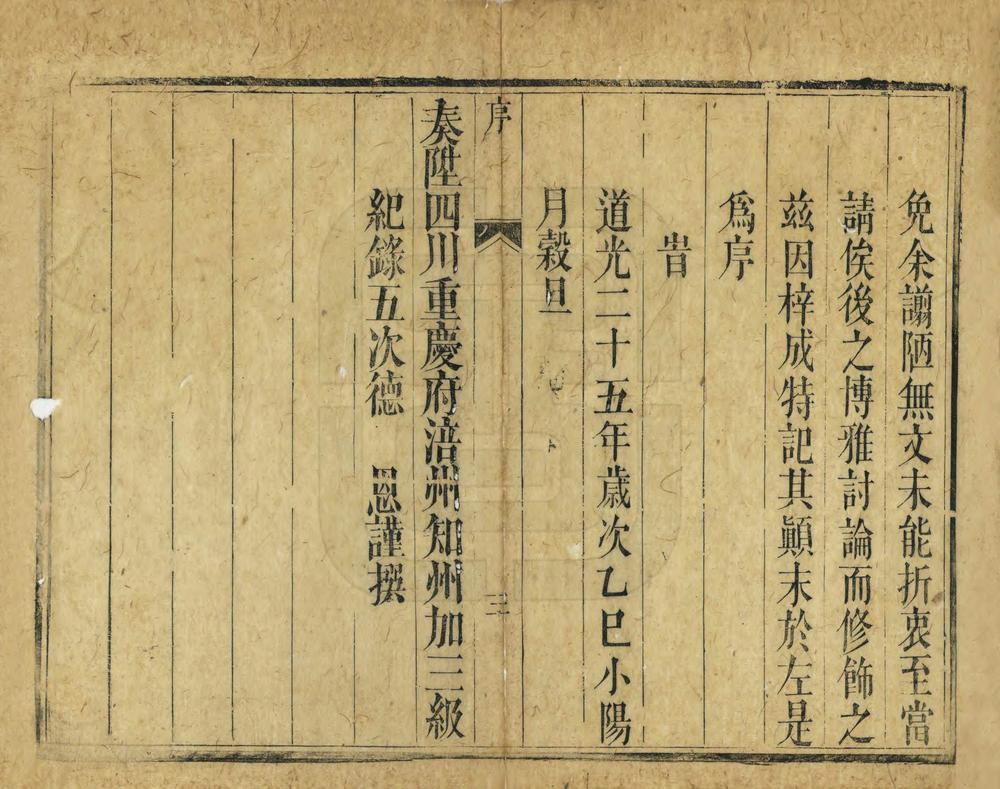 免余譾陋無文未能折衷至當
請俟後之博雅討論而修飾之
茲因梓成特記其顚末於左是
爲序
旹
道光二十五年歲次乙巳小陽
月穀旦
序 三
奏陞四川重慶府涪州知州加三級
紀錄五次德 恩謹撰